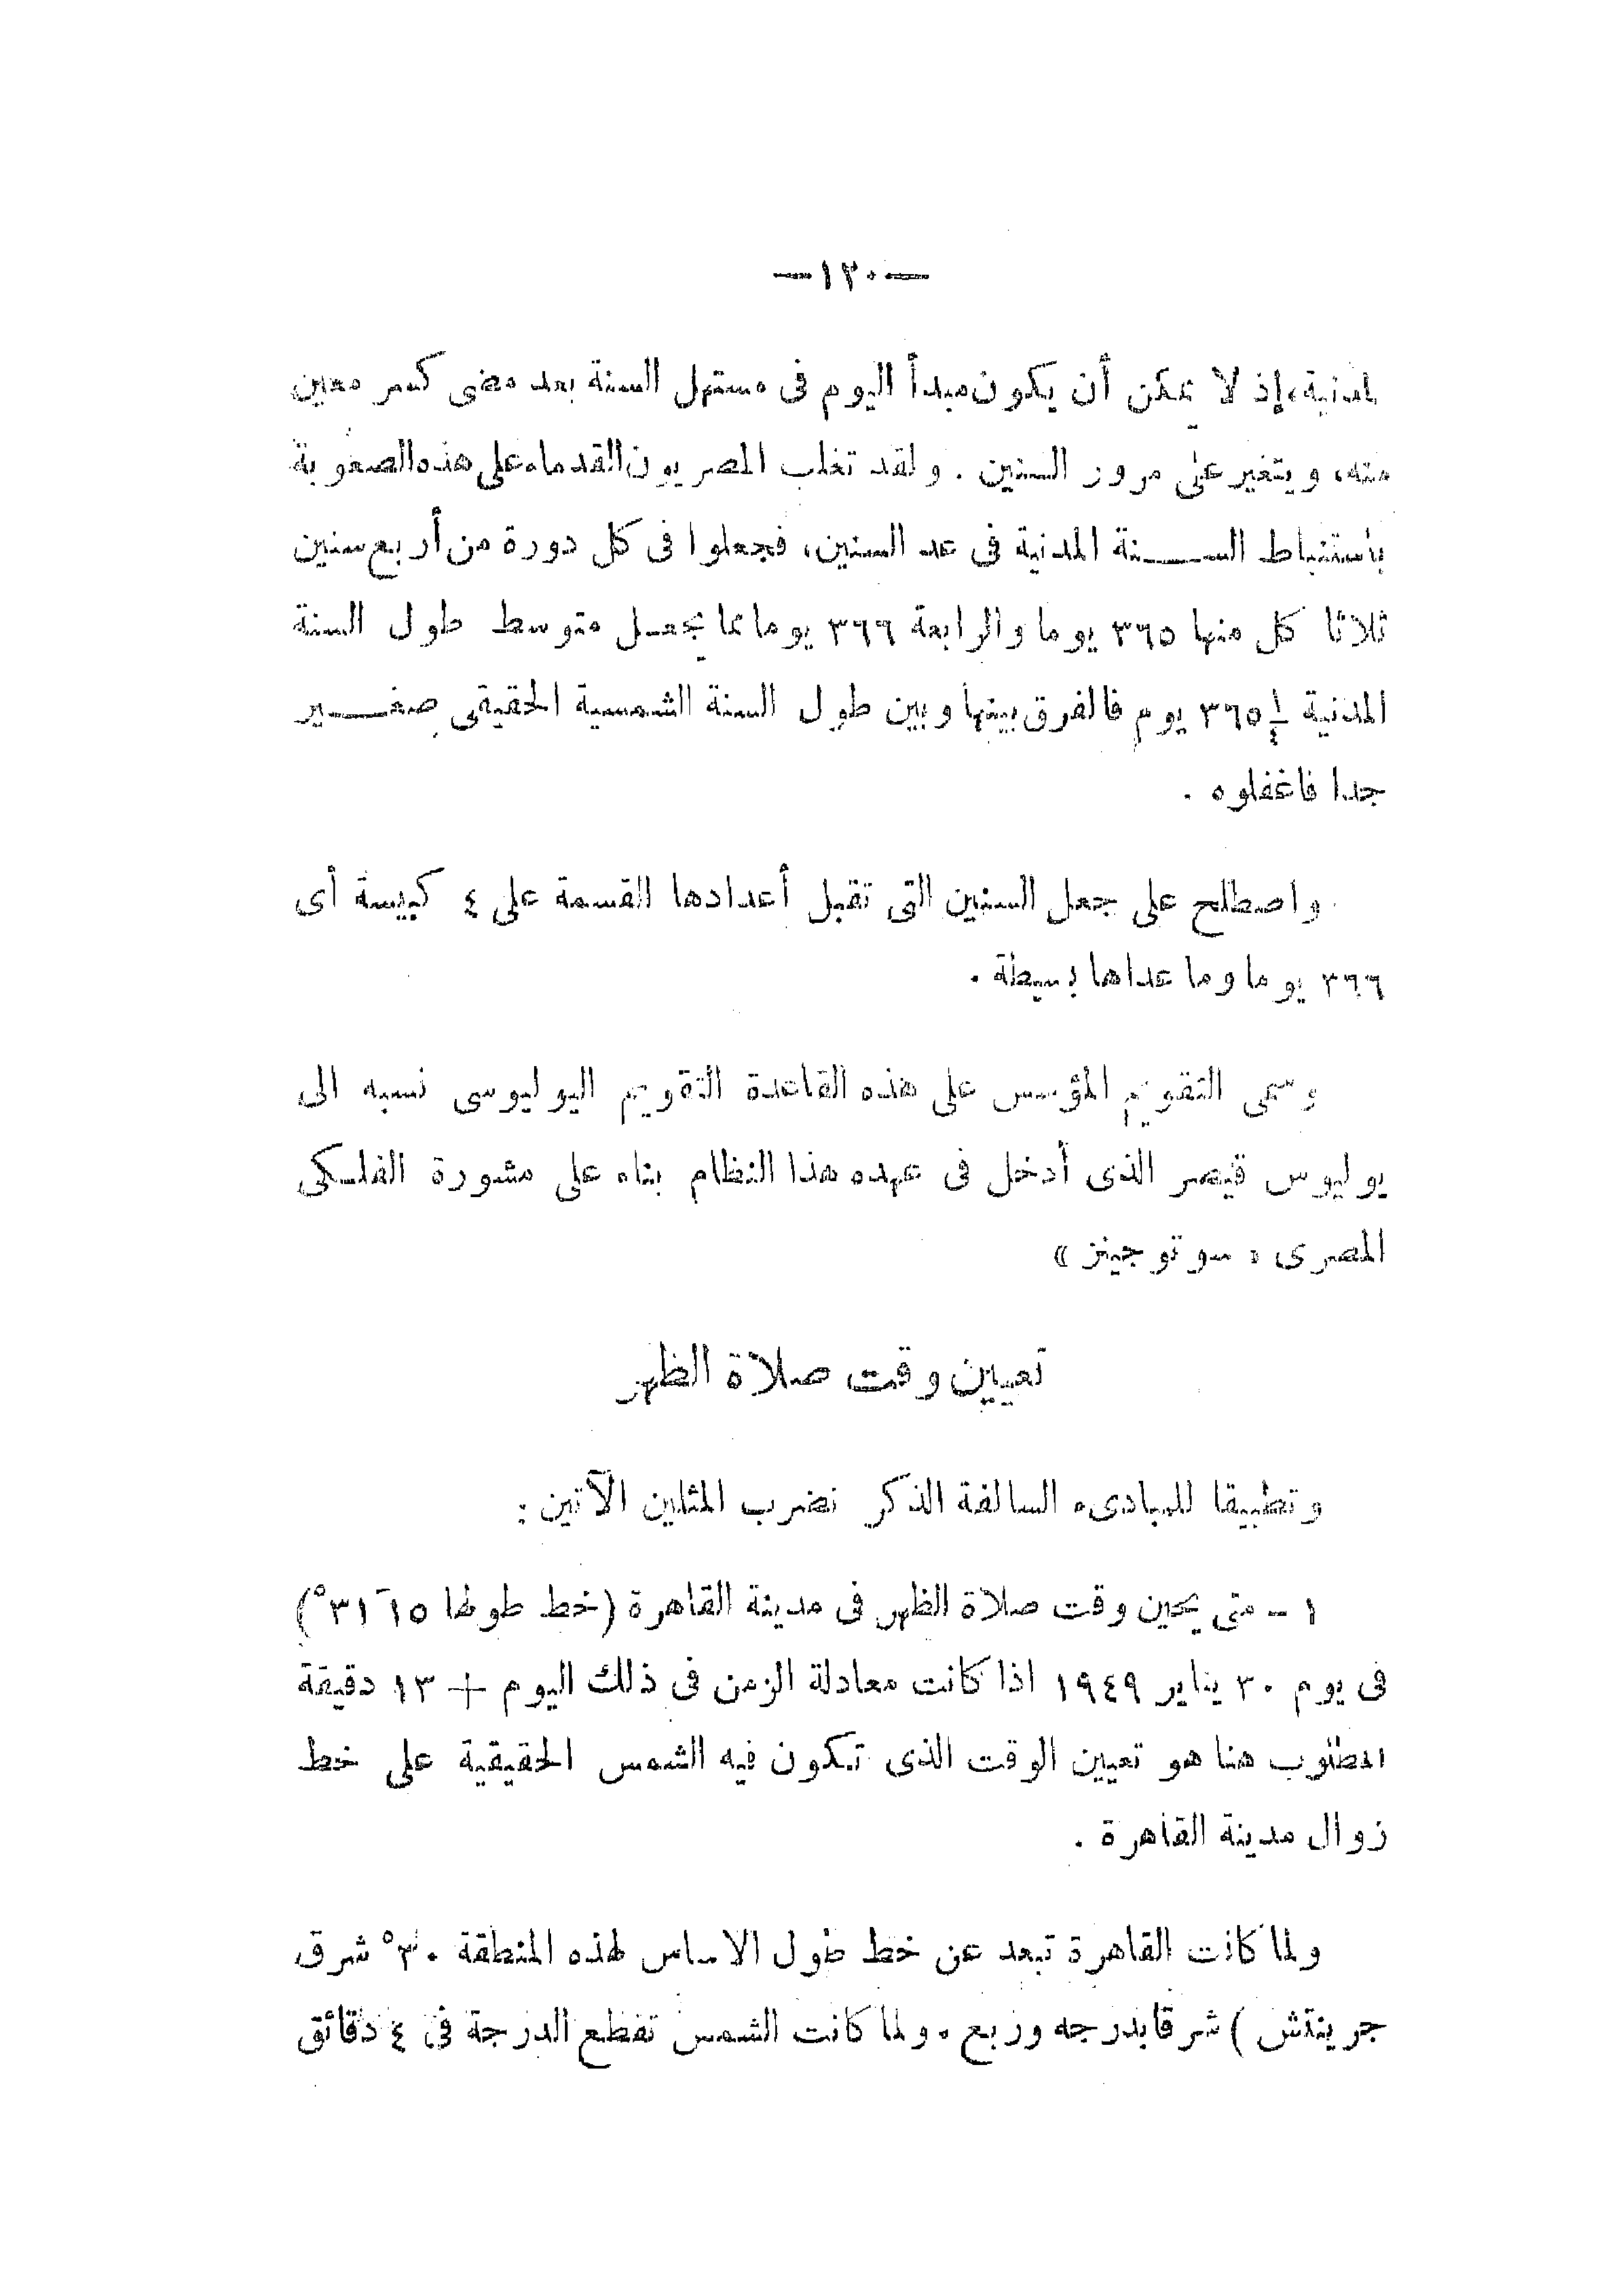 —١٢٠—
لمدنية، إذ لا يمكن أن يكون مبدأ اليوم فى مستهل السنة بعد مضى كسر معين
منه، ويتغير على مرور السنين . ولقد تغلب المصريون القدماء على هذه الصعوبة
باستنباط الســـنة المدنية فى عد السنين، فجعلوا فى كل دورة من أربع سنين
ثلاثا كل منها ٣٦٥ يوما والرابعة ٣٦٦ يوما مما يجعل متوسط طول السنة
المدنية ١/٤ ٣٦٥ يوم فالفرق بينها وبين طول السنة الشمسية الحقيقى صغـــير
جدا فاغفلوه .
واصطلح على جعل السنين التى تقبل أعدادها القسمة على ٤ كبيسة أى
٣٦٦ يوما وما عداها بسيطة .
وسمى التقويم المؤسس على هذه القاعدة التقويم اليوليوسى نسبه الى
يوليوس قيصر الذى أدخل فى عهده هذا النظام بناء على مشورة الفلكى
المصرى « سوتوجينز »
تعيين وقت صلاة الظهر
وتطبيقا للمبادىء السالفة الذكر نضرب المثلين الآتين :
١ - متى يحين وقت صلاة الظهر فى مدينة القاهرة (خط طولها ١٥َ ٣١°)
فى يوم ٣٠ يناير ١٩٤٩ اذا كانت معادلة الزمن فى ذلك اليوم + ١٣ دقيقة
المطلوب هنا هو تعيين الوقت الذى تكون فيه الشمس الحقيقية على خط
زوال مدينة القاهرة .
ولما كانت القاهرة تبعد عن خط طول الاساس لهذه المنطقة ٣٠° شرق
جرينتش ) شرقا بدرجه وربع . ولما كانت الشمس تقطع الدرجة فى ٤ دقائق